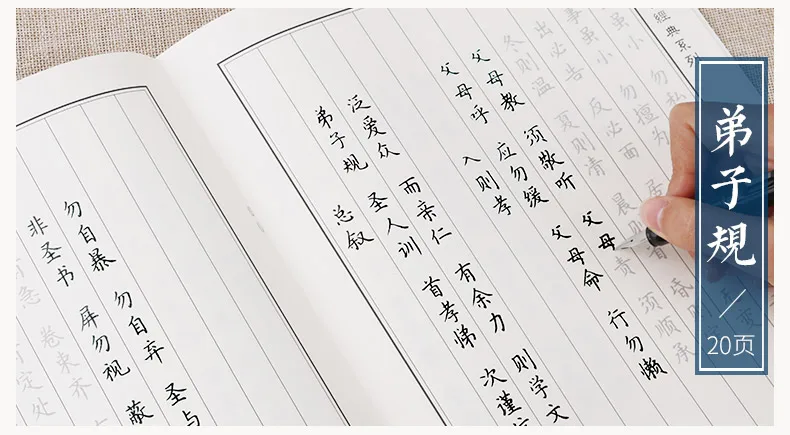 經典系列
虽小 勿私
事虽小 勿擅为
出必告 反必面 居
冬则温 夏则凊 晨则 昏则
父母教 须敬听 父母责 须顺承
父母呼 应勿缓 父母命 行勿懒
入则孝
泛爱众 而亲仁 有余力 则学文
弟子规 圣人训 首孝悌 次谨
总叙
勿自暴 勿自弃 圣与
非圣书 屏勿视 蔽
急 卷束齐
定处
弟子規
/
20页